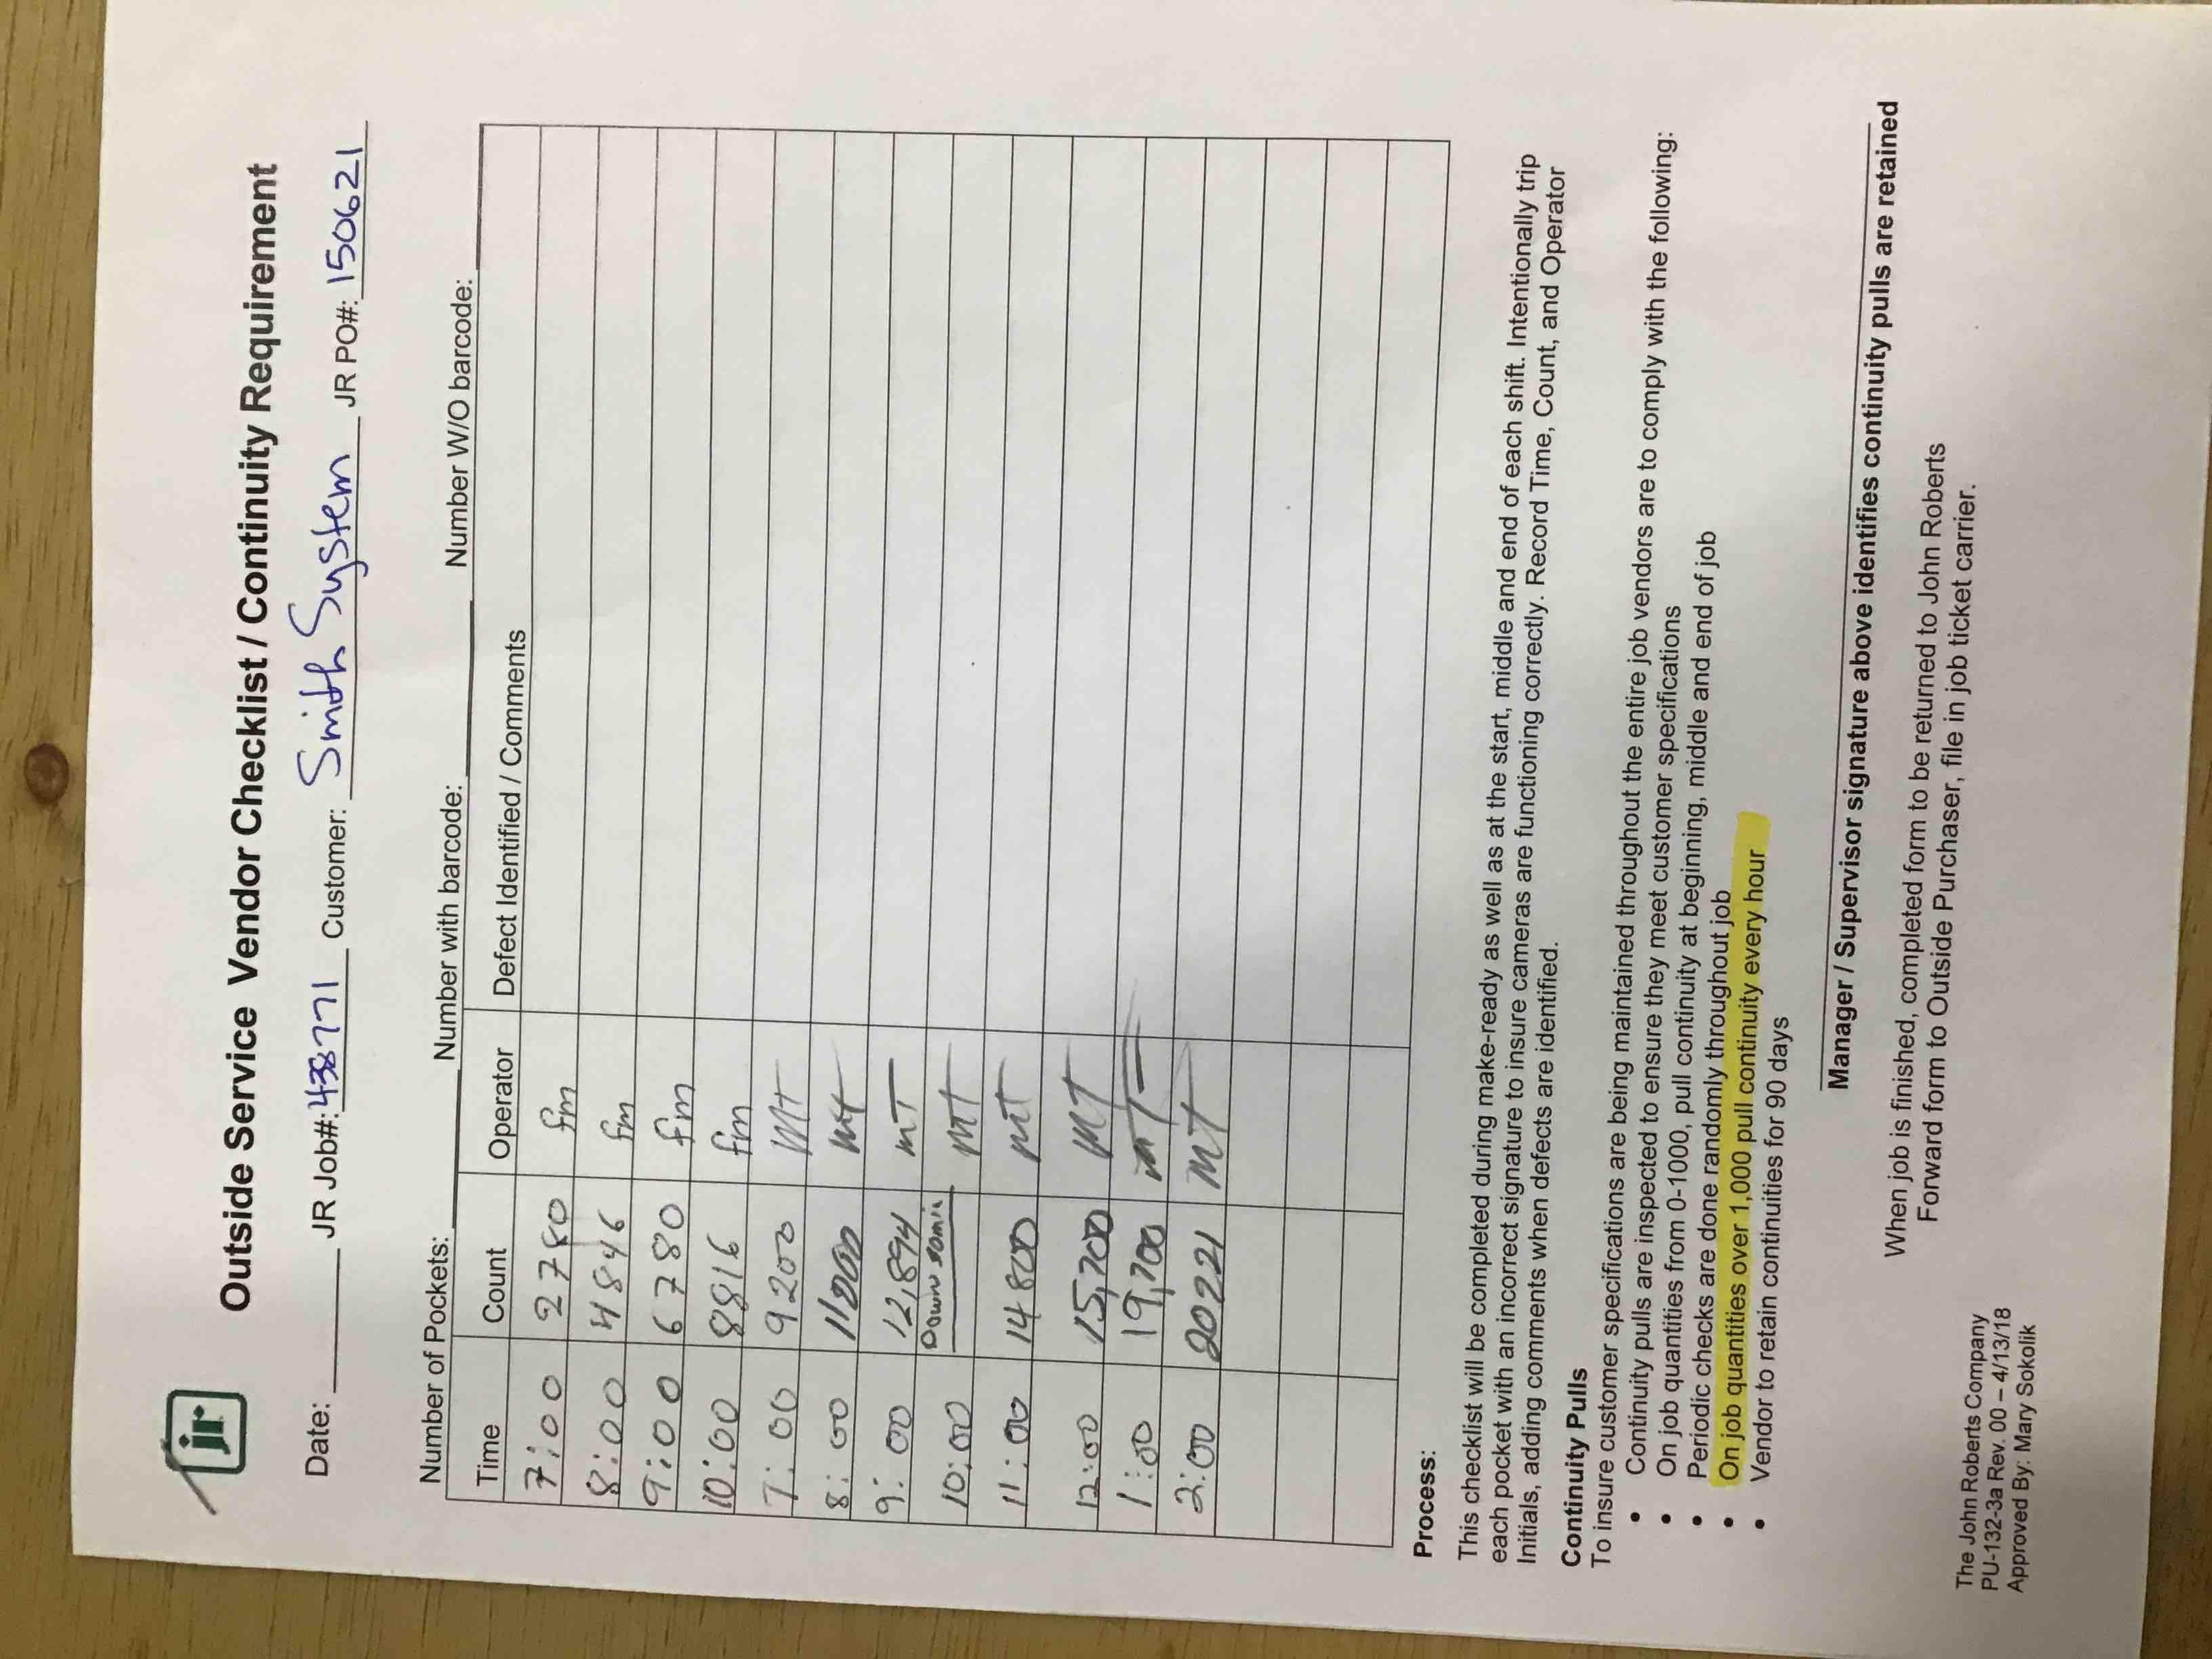 jr
Outside Service Vendor Checklist / Continuity Requirement
Date: JR Job#: 438771 Customer: Smith System JR PO#: 150621
Number of Pockets: Number with barcode: Number W/O barcode:
Time Count Operator Defect Identified / Comments
7:00 2780 fm
8:00 4846 fm
9:00 6780 fm
10:00 8816 fm
7:00 9200 MT
8:00 11000 MT
9:00 12,894 MT
10:00 Down 30min MT
11:00 14800 MT
12:00 15,700 MT
1:00 19,700 MT
2:00 20221 MT
Process:
This checklist will be completed during make-ready as well as at the start, middle and end of each shift. Intentionally trip
each pocket with an incorrect signature to insure cameras are functioning correctly. Record Time, Count, and Operator
Initials, adding comments when defects are identified.
Continuity Pulls
To insure customer specifications are being maintained throughout the entire job vendors are to comply with the following:
• Continuity pulls are inspected to ensure they meet customer specifications
• On job quantities from 0-1000, pull continuity at beginning, middle and end of job
• Periodic checks are done randomly throughout job
• On job quantities over 1,000 pull continuity every hour
• Vendor to retain continuities for 90 days
Manager / Supervisor signature above identifies continuity pulls are retained
When job is finished, completed form to be returned to John Roberts
Forward form to Outside Purchaser, file in job ticket carrier.
The John Roberts Company
PU-132-3a Rev. 00 – 4/13/18
Approved By: Mary Sokolik